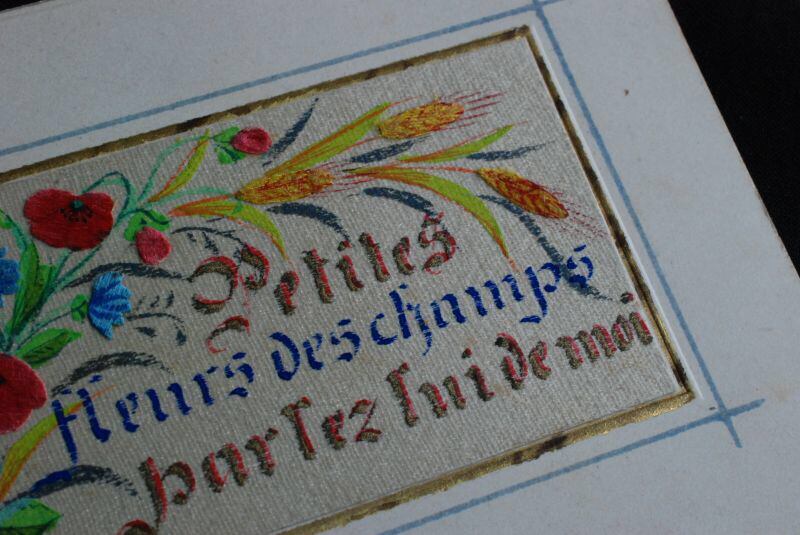 Petites
fleurs des champs
parlez lui de moi